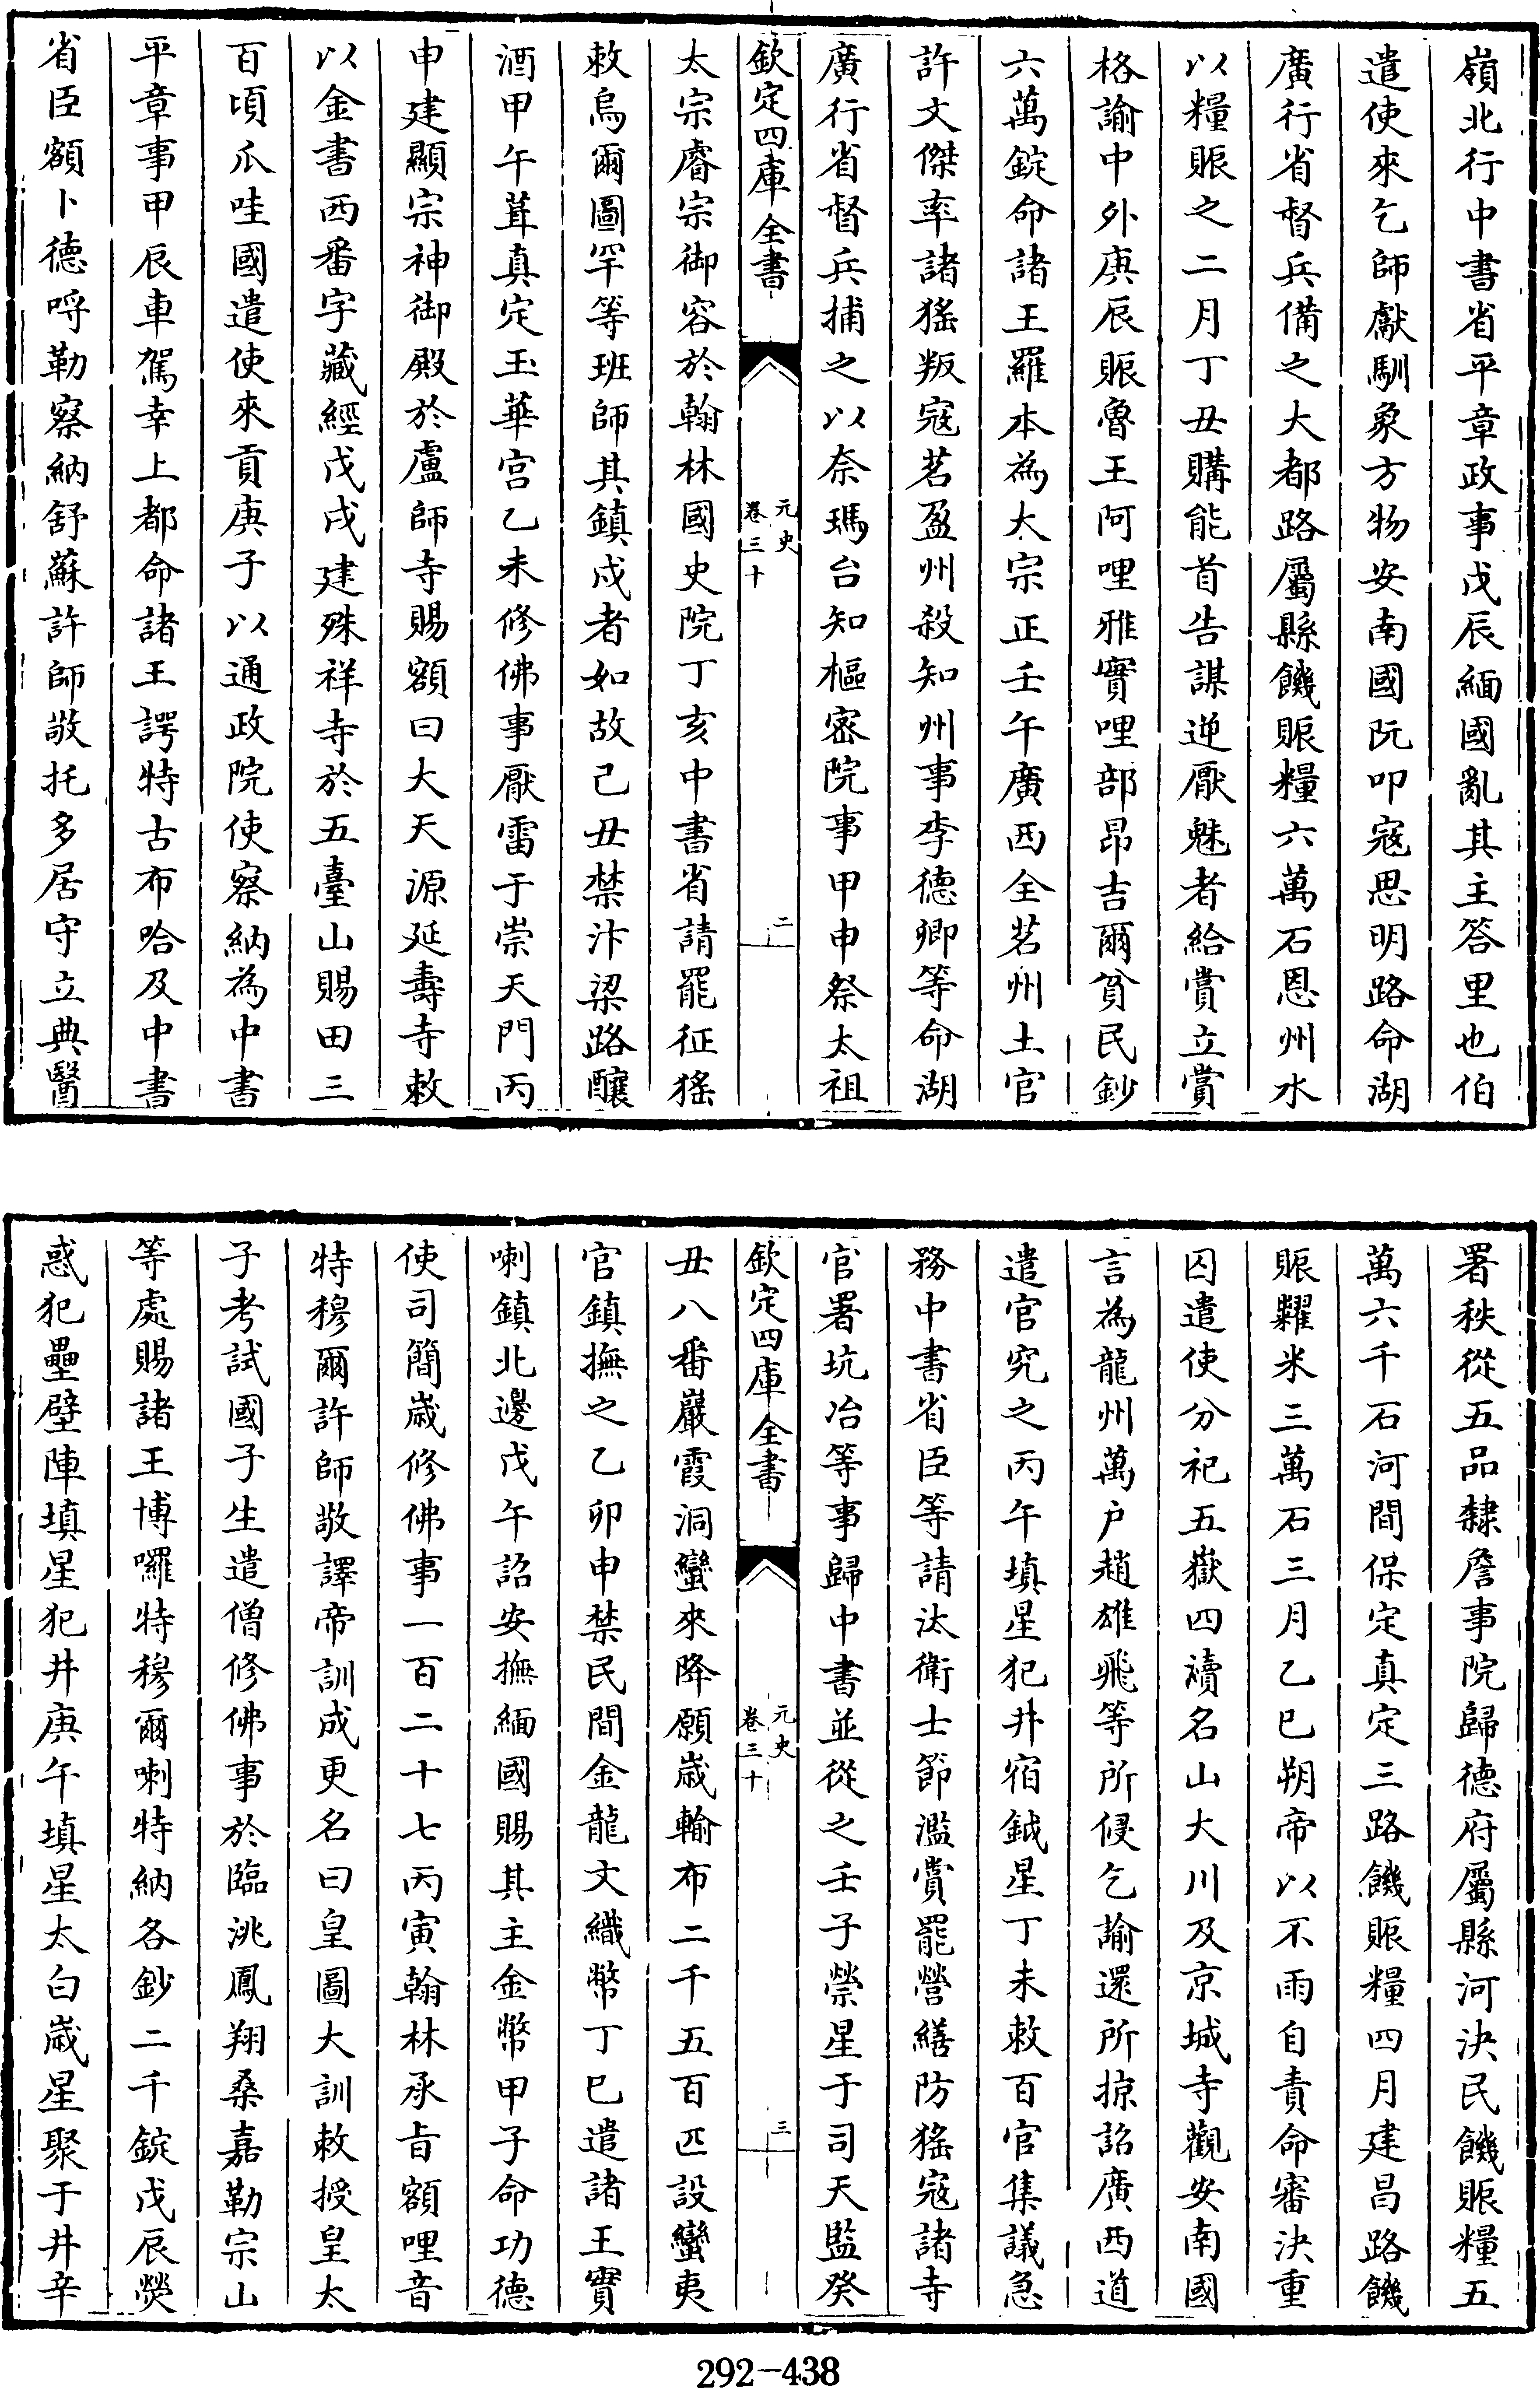 嶺北行中書省平章政事戊辰緬國亂其主答里也伯
遣使來乞師獻馴象方物安南國阮叩寇思明路命湖
廣行省督兵備之大都路屬縣饑賑糧六萬石恩州水
以糧賑之二月丁丑購能首告謀逆厭魅者給賞立賞
格諭中外庚辰賑魯王阿哩雅實哩部昂吉爾貧民鈔
六萬錠命諸王羅本為大宗正壬午廣西全茗州土官
許文傑率諸猺叛寇茗盈州殺知州事李德卿等命湖
廣行省督兵捕之以奈瑪台知樞密院事甲申祭太祖
欽定四庫全書
元史
卷三十
二
太宗睿宗御容於翰林國史院丁亥中書省請罷征猺
敕烏爾圖罕等班師其鎮戍者如故己丑禁汴梁路釀
酒甲午葺真定玉華宮乙未修佛事厭雷于崇天門丙
申建顯宗神御殿於盧師寺賜額曰大天源延壽寺敕
以金書西番字藏經戊戌建殊祥寺於五臺山賜田三
百頃爪哇國遣使來貢庚子以通政院使察納為中書
平章事甲辰車駕幸上都命諸王諤特古布哈及中書
省臣額卜德呼勒察納舒蘇許師敬托多居守立典醫
署秩從五品隸詹事院歸德府屬縣河決民饑賑糧五
萬六千石河間保定真定三路饑賑糧四月建昌路饑
賑糶米三萬石三月乙巳朔帝以不雨自責命審決重
囚遣使分祀五嶽四瀆名山大川及京城寺觀安南國
言為龍州萬户趙雄飛等所侵乞諭還所掠詔廣西道
遣官究之丙午填星犯井宿鉞星丁未敕百官集議急
務中書省臣等請汰衛士節濫賞罷營繕防猺寇諸寺
官署坑冶等事歸中書並從之壬子熒星于司天監癸
欽定四庫全書
元史
卷三十
三
丑八番巖霞洞蠻來降願歲輸布二千五百匹設蠻夷
官鎮撫之乙卯申禁民間金龍文織幣丁巳遣諸王實
喇鎮北邊戊午詔安撫緬國賜其主金幣甲子命功德
使司簡歲修佛事一百二十七丙寅翰林承旨額哩音
特穆爾許師敬譯帝訓成更名曰皇圖大訓敕授皇太
子考試國子生遣僧修佛事於臨洮鳳翔桑嘉勒宗山
等處賜諸王博囉特穆爾喇特納各鈔二千錠戊辰熒
惑犯壘壁陣填星犯井庚午填星太白歲星聚于井辛
292-438